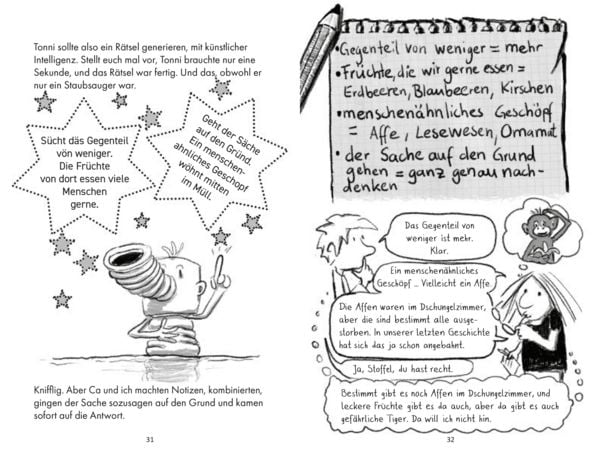 Tonni sollte also ein Rätsel generieren, mit künstlicher
Intelligenz. Stellt euch mal vor, Tonni brauchte nur eine
Sekunde, und das Rätsel war fertig. Und das, obwohl er
nur ein Staubsauger war.
Sücht das Gegenteil
vön weniger.
Die Früchte
von dort essen viele
Menschen
gerne.
Geht der Säche
auf den Gründ.
Ein menschen-
ähnliches Geschöpf
wöhnt mitten
im Müll.
Knifflig. Aber Ca und ich machten Notizen, kombinierten,
gingen der Sache sozusagen auf den Grund und kamen
sofort auf die Antwort.
31
•Gegenteil von weniger = mehr
•Früchte, die wir gerne essen =
Erdbeeren, Blaubeeren, Kirschen
•menschenähnliches Geschöpf
= Affe, Lesewesen, Ornamat
• der Sache auf den Grund
gehen = ganz genau nach-
denken
Das Gegenteil von
weniger ist mehr.
Klar.
Ein menschenähnliches
Geschöpf ... Vielleicht ein Affe.
Die Affen waren im Dschungelzimmer,
aber die sind bestimmt alle ausge-
storben. In unserer letzten Geschichte
hat sich das ja schon angebahnt.
Ja, Stoffel, du hast recht.
Bestimmt gibt es noch Affen im Dschungelzimmer, und
leckere Früchte gibt es da auch, aber da gibt es auch
gefährliche Tiger. Da will ich nicht hin.
32